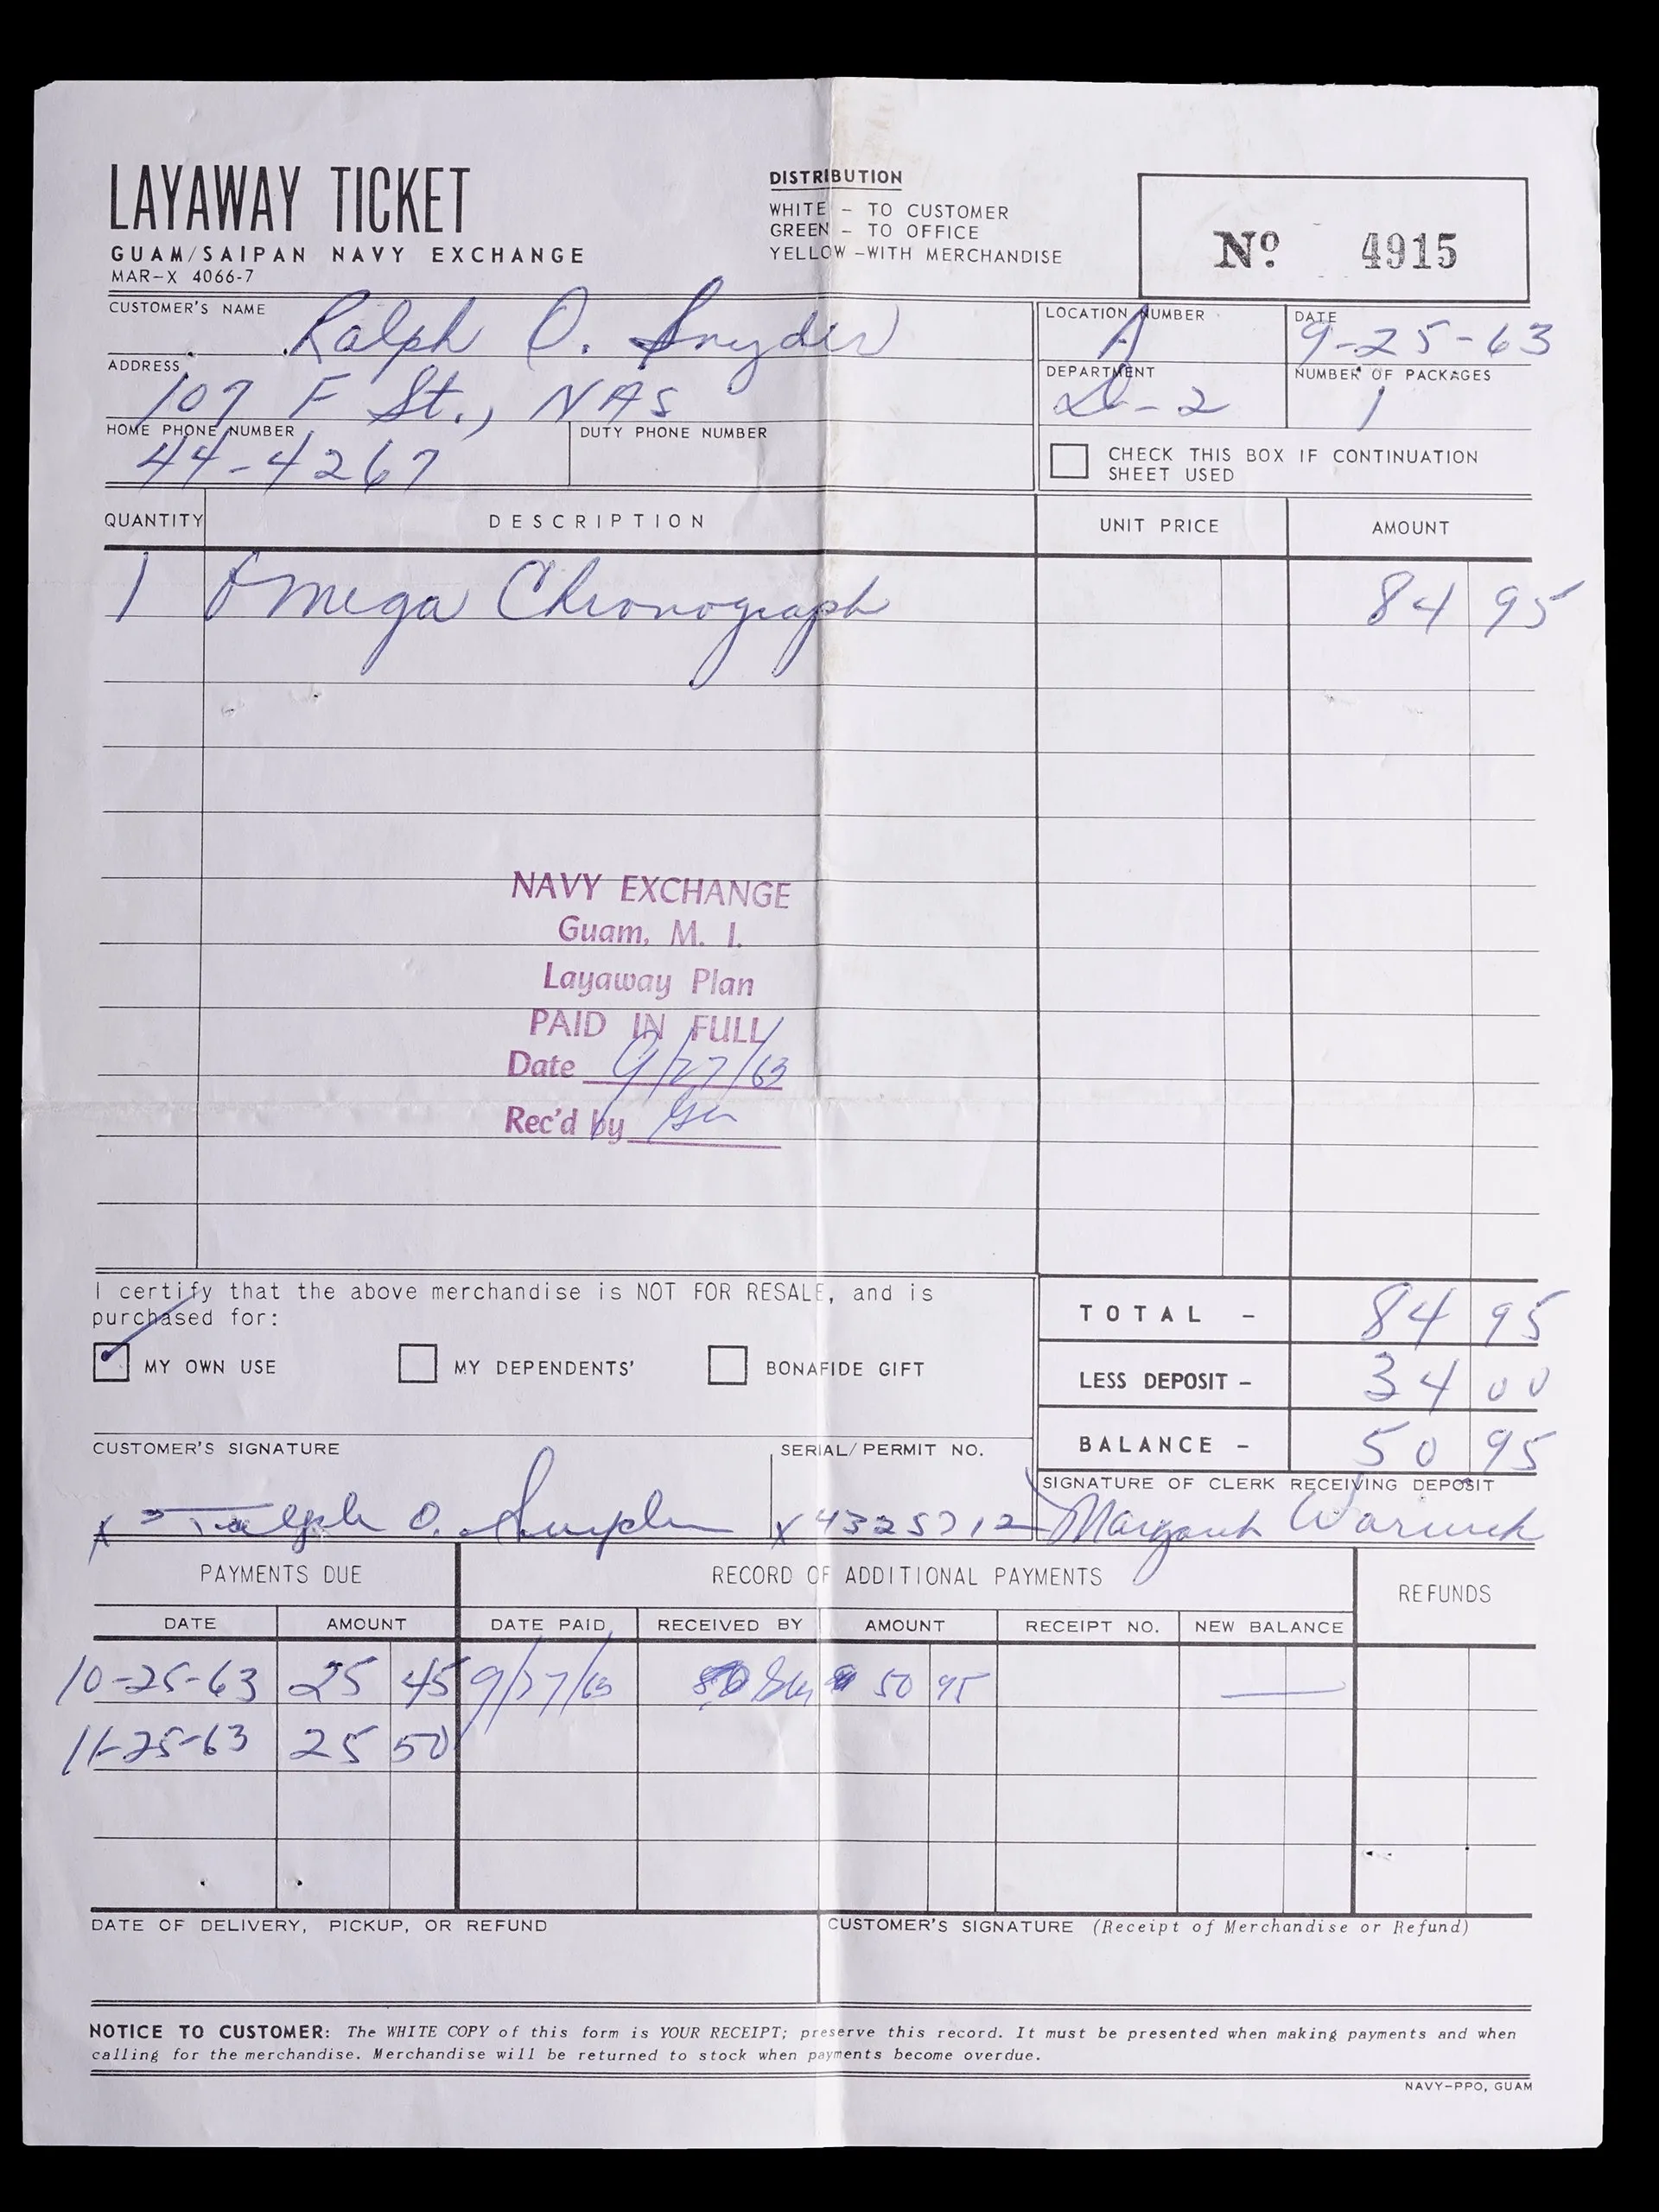 LAYAWAY TICKET
GUAM/SAIPAN NAVY EXCHANGE
MAR-X 4066-7
DISTRIBUTION
WHITE - TO CUSTOMER
GREEN - TO OFFICE
YELLOW -WITH MERCHANDISE
Nº 4915
CUSTOMER'S NAME
Ralph O. Snyder
ADDRESS
107 F St., NAS
HOME PHONE NUMBER
44-4267
DUTY PHONE NUMBER
LOCATION NUMBER
A
DATE
9-25-63
DEPARTMENT
D-2
NUMBER OF PACKAGES
1
CHECK THIS BOX IF CONTINUATION
SHEET USED
QUANTITY DESCRIPTION UNIT PRICE AMOUNT
1 Omega Chronograph 84 95
NAVY EXCHANGE
Guam, M. I.
Layaway Plan
PAID IN FULL
Date 9/27/63
Rec'd by
I certify that the above merchandise is NOT FOR RESALE, and is
purchased for:
MY OWN USE MY DEPENDENTS' BONAFIDE GIFT
TOTAL - 84 95
LESS DEPOSIT - 34 00
BALANCE - 50 95
CUSTOMER'S SIGNATURE
x Ralph O. Snyder
SERIAL/PERMIT NO.
x 4325712
SIGNATURE OF CLERK RECEIVING DEPOSIT
Margaret Warwick
PAYMENTS DUE RECORD OF ADDITIONAL PAYMENTS REFUNDS
DATE AMOUNT DATE PAID RECEIVED BY AMOUNT RECEIPT NO. NEW BALANCE
10-25-63 25 45 9/27/63 50 95
11-25-63 25 50
DATE OF DELIVERY, PICKUP, OR REFUND
CUSTOMER'S SIGNATURE (Receipt of Merchandise or Refund)
NOTICE TO CUSTOMER: The WHITE COPY of this form is YOUR RECEIPT; preserve this record. It must be presented when making payments and when
calling for the merchandise. Merchandise will be returned to stock when payments become overdue.
NAVY-PPO, GUAM